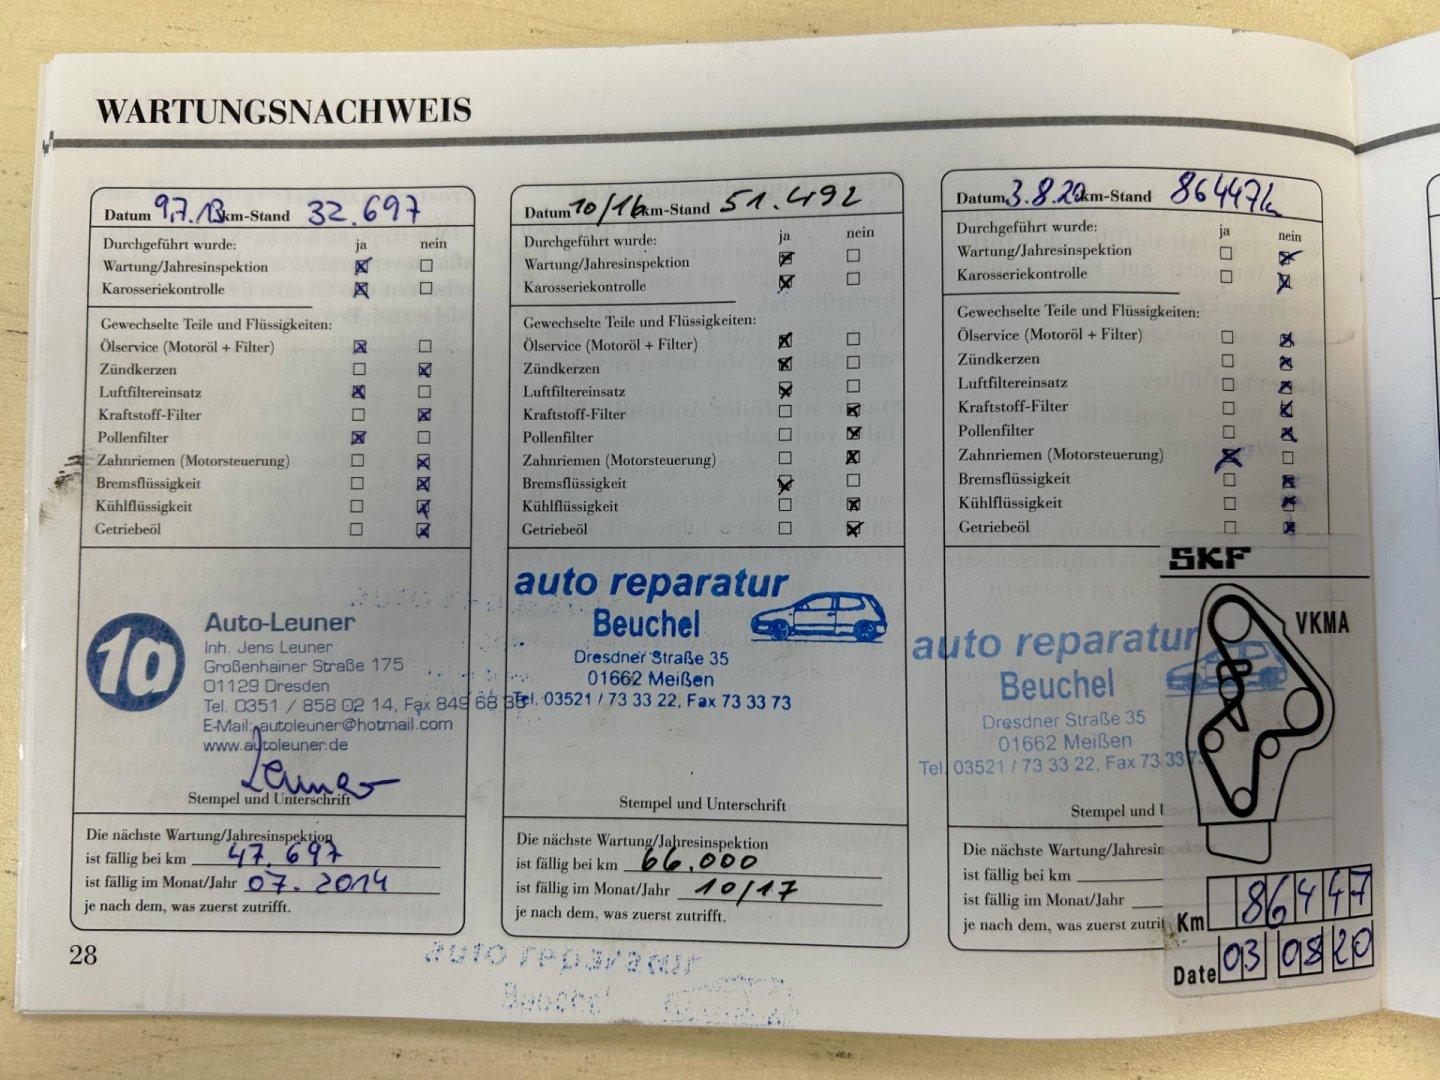 WARTUNGSNACHWEIS
Datum 9.7.13 km-Stand 32.697
Durchgeführt wurde: ja nein
Wartung/Jahresinspektion
Karosseriekontrolle
Gewechselte Teile und Flüssigkeiten:
Ölservice (Motoröl + Filter)
Zündkerzen
Luftfiltereinsatz
Kraftstoff-Filter
Pollenfilter
Zahnriemen (Motorsteuerung)
Bremsflüssigkeit
Kühlflüssigkeit
Getriebeöl
1a
Auto-Leuner
Inh. Jens Leuner
Großenhainer Straße 175
01129 Dresden
Tel. 0351 / 858 02 14, Fax 849 68 35
E-Mail: autoleuner@hotmail.com
www.autoleuner.de
Leuner
Stempel und Unterschrift
Die nächste Wartung/Jahresinspektion
ist fällig bei km 47.697
ist fällig im Monat/Jahr 07.2014
je nach dem, was zuerst zutrifft.
28
Datum 10/16 km-Stand 51.492
Durchgeführt wurde: ja nein
Wartung/Jahresinspektion
Karosseriekontrolle
Gewechselte Teile und Flüssigkeiten:
Ölservice (Motoröl + Filter)
Zündkerzen
Luftfiltereinsatz
Kraftstoff-Filter
Pollenfilter
Zahnriemen (Motorsteuerung)
Bremsflüssigkeit
Kühlflüssigkeit
Getriebeöl
auto reparatur
Beuchel
Dresdner Straße 35
01662 Meißen
Tel. 03521 / 73 33 22, Fax 73 33 73
Stempel und Unterschrift
Die nächste Wartung/Jahresinspektion
ist fällig bei km 66.000
ist fällig im Monat/Jahr 10/17
je nach dem, was zuerst zutrifft.
Datum 3.8.20 km-Stand 86447k
Durchgeführt wurde: ja nein
Wartung/Jahresinspektion
Karosseriekontrolle
Gewechselte Teile und Flüssigkeiten:
Ölservice (Motoröl + Filter)
Zündkerzen
Luftfiltereinsatz
Kraftstoff-Filter
Pollenfilter
Zahnriemen (Motorsteuerung)
Bremsflüssigkeit
Kühlflüssigkeit
Getriebeöl
auto reparatur
Beuchel
Dresdner Straße 35
01662 Meißen
Tel. 03521 / 73 33 22, Fax 73 33 73
Stempel und U
Die nächste Wartung/Jahresinspektion
ist fällig bei km
ist fällig im Monat/Jahr
je nach dem, was zuerst zutri
SKF
VKMA
Km 86447
Date 03 08 20